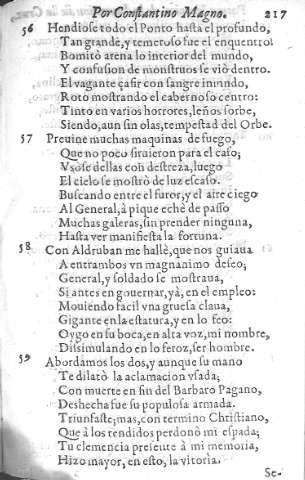 Por Constantino Magno. 217
56 Hendiose todo el Ponto hasta el profundo,
Tan grande, y temeroso fue el enquentro!
Bomitò arena lo interior del mundo,
Y confusion de monstruos se viò dentro.
El vagante çafir con sangre inmundo,
Roto mostrando el cabernoso centro:
Tinto en varios horrores, leños sorbe,
Siendo, aun sin olas, tempestad del Orbe.
57 Preuine muchas maquinas de fuego,
Que no poco siruieron para el caso;
Vsòse dellas con destreza, luego
El cielo se mostrò de luz escaso.
Buscando entre el furor, y el aire ciego
Al General, à pique echè de passo
Muchas galeras, sin prender ninguna,
Hasta ver manifiesta la fortuna.
58 Con Aldruban me hallè, que nos guiaua
A entrambos vn magnanimo deseo;
General, y soldado se mostraua,
Si antes en gouernar, yà, en el empleo:
Mouiendo facil vna gruesa claua,
Gigante en la estatura, y en lo feo:
Oygo en su boca, en alta voz, mi nombre,
Dissimulando en lo feroz, ser hombre.
59 Abordàmos los dos, y aunque su mano
Te dilatò la aclamacion vsada;
Con muerte en fin del Barbaro Pagano,
Deshecha fue su populosa armada.
Triunfaste; mas, con termino Christiano,
Que à los rendidos perdonò mi espada;
Tu clemencia presente à mi memoria,
Hizo mayor, en esto, la vitoria.
Se-